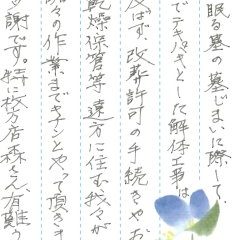 眠る墓の墓じまいに際して、
でテキパキとした解体工事は
及ばず、改葬許可の手続きやお
乾燥保管等遠方に住む我々が
々の作業までキチンとやって頂きま
謝です。特に枚方店森さん、有難う